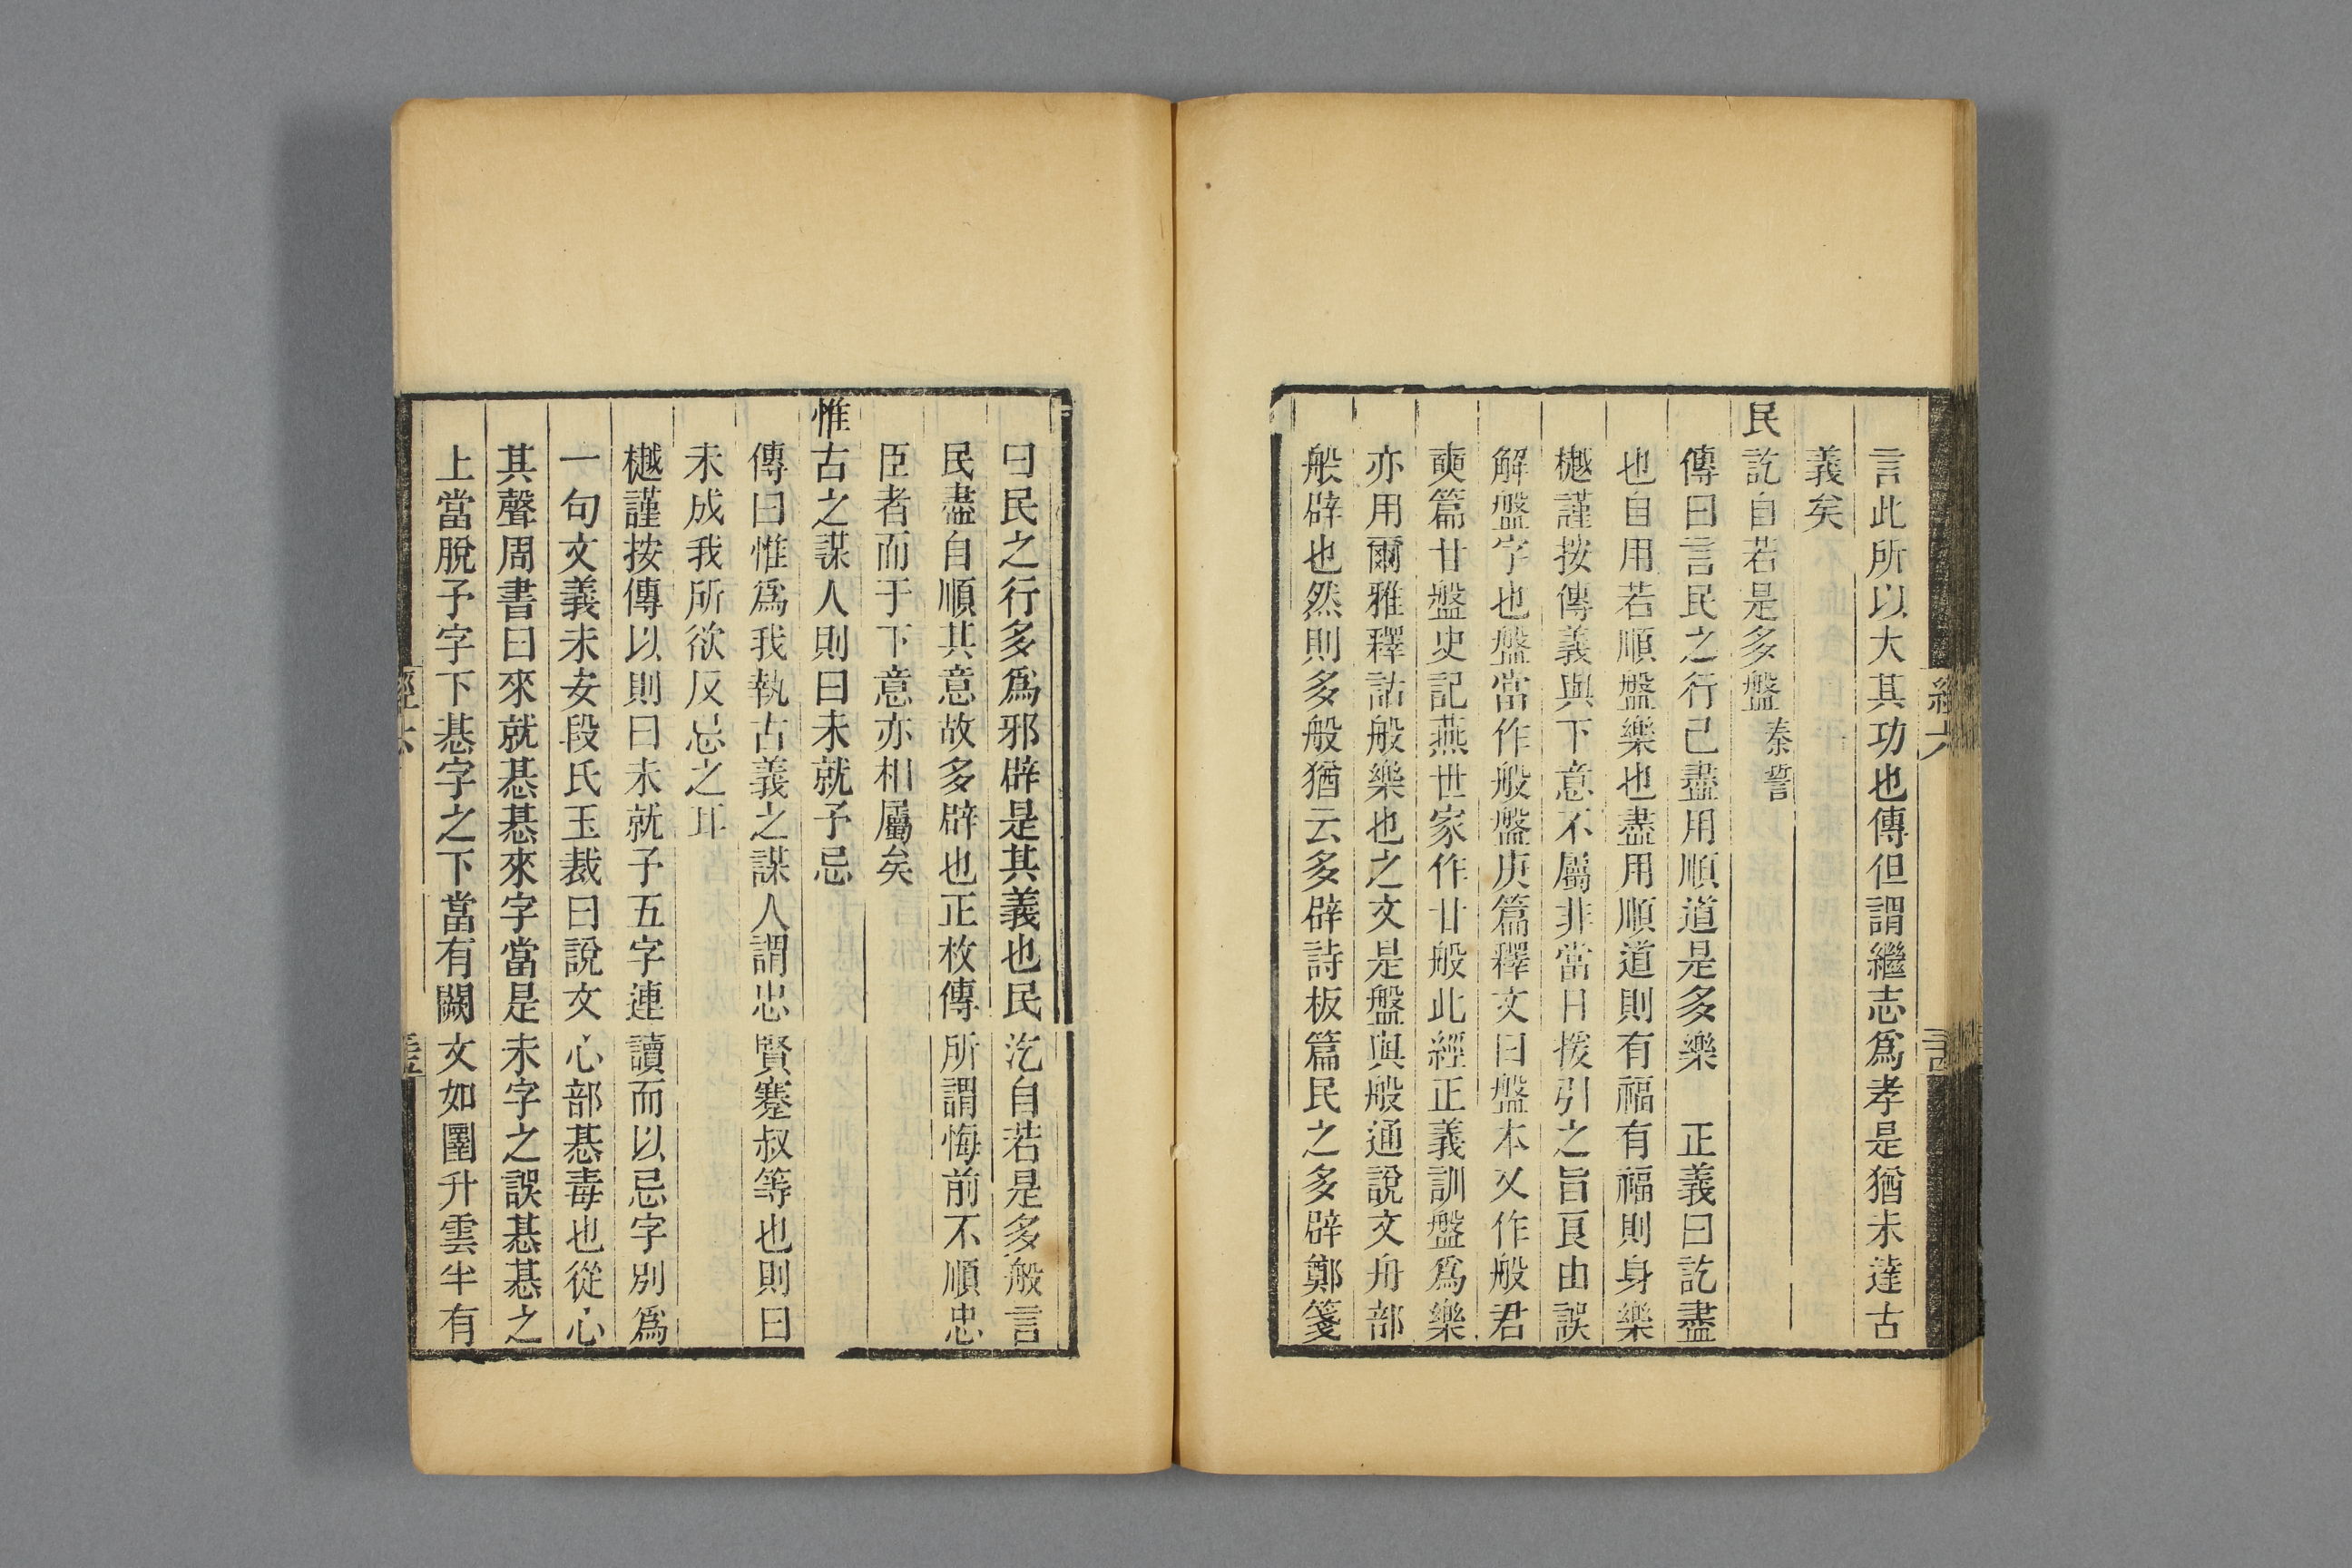 言此所以大其功也傳但謂繼志爲孝是猶未達古
義矣
民訖自若是多盤秦誓
傳曰言民之行己盡用順道是多樂　正義曰訖盡
也自用若順盤樂也盡用順道則有福有福則身樂
樾謹按傳義與下意不屬非當日援引之旨良由誤
解盤字也盤當作般盤庚篇釋文曰盤本又作般君
奭篇甘盤史記燕世家作甘般此經正義訓盤爲樂
亦用爾雅釋詁般樂也之文是盤與般通說文舟部
般辟也然則多般猶云多辟詩板篇民之多辟鄭箋
曰民之行多爲邪辟是其義也民汔自若是多般言
民盡自順其意故多辟也正枚傳所謂悔前不順忠
臣者而于下意亦相屬矣
惟古之謀人則曰未就予忌
傳曰惟爲我執古義之謀人謂忠賢蹇叔等也則曰
未成我所欲反忌之耳
樾謹按傳以則曰未就予五字連讀而以忌字別爲
一句文義未安段氏玉裁曰說文心部惎毒也從心
其聲周書曰來就惎惎來字當是未字之誤惎惎之
上當脫予字下惎字之下當有闕文如圛升雲半有